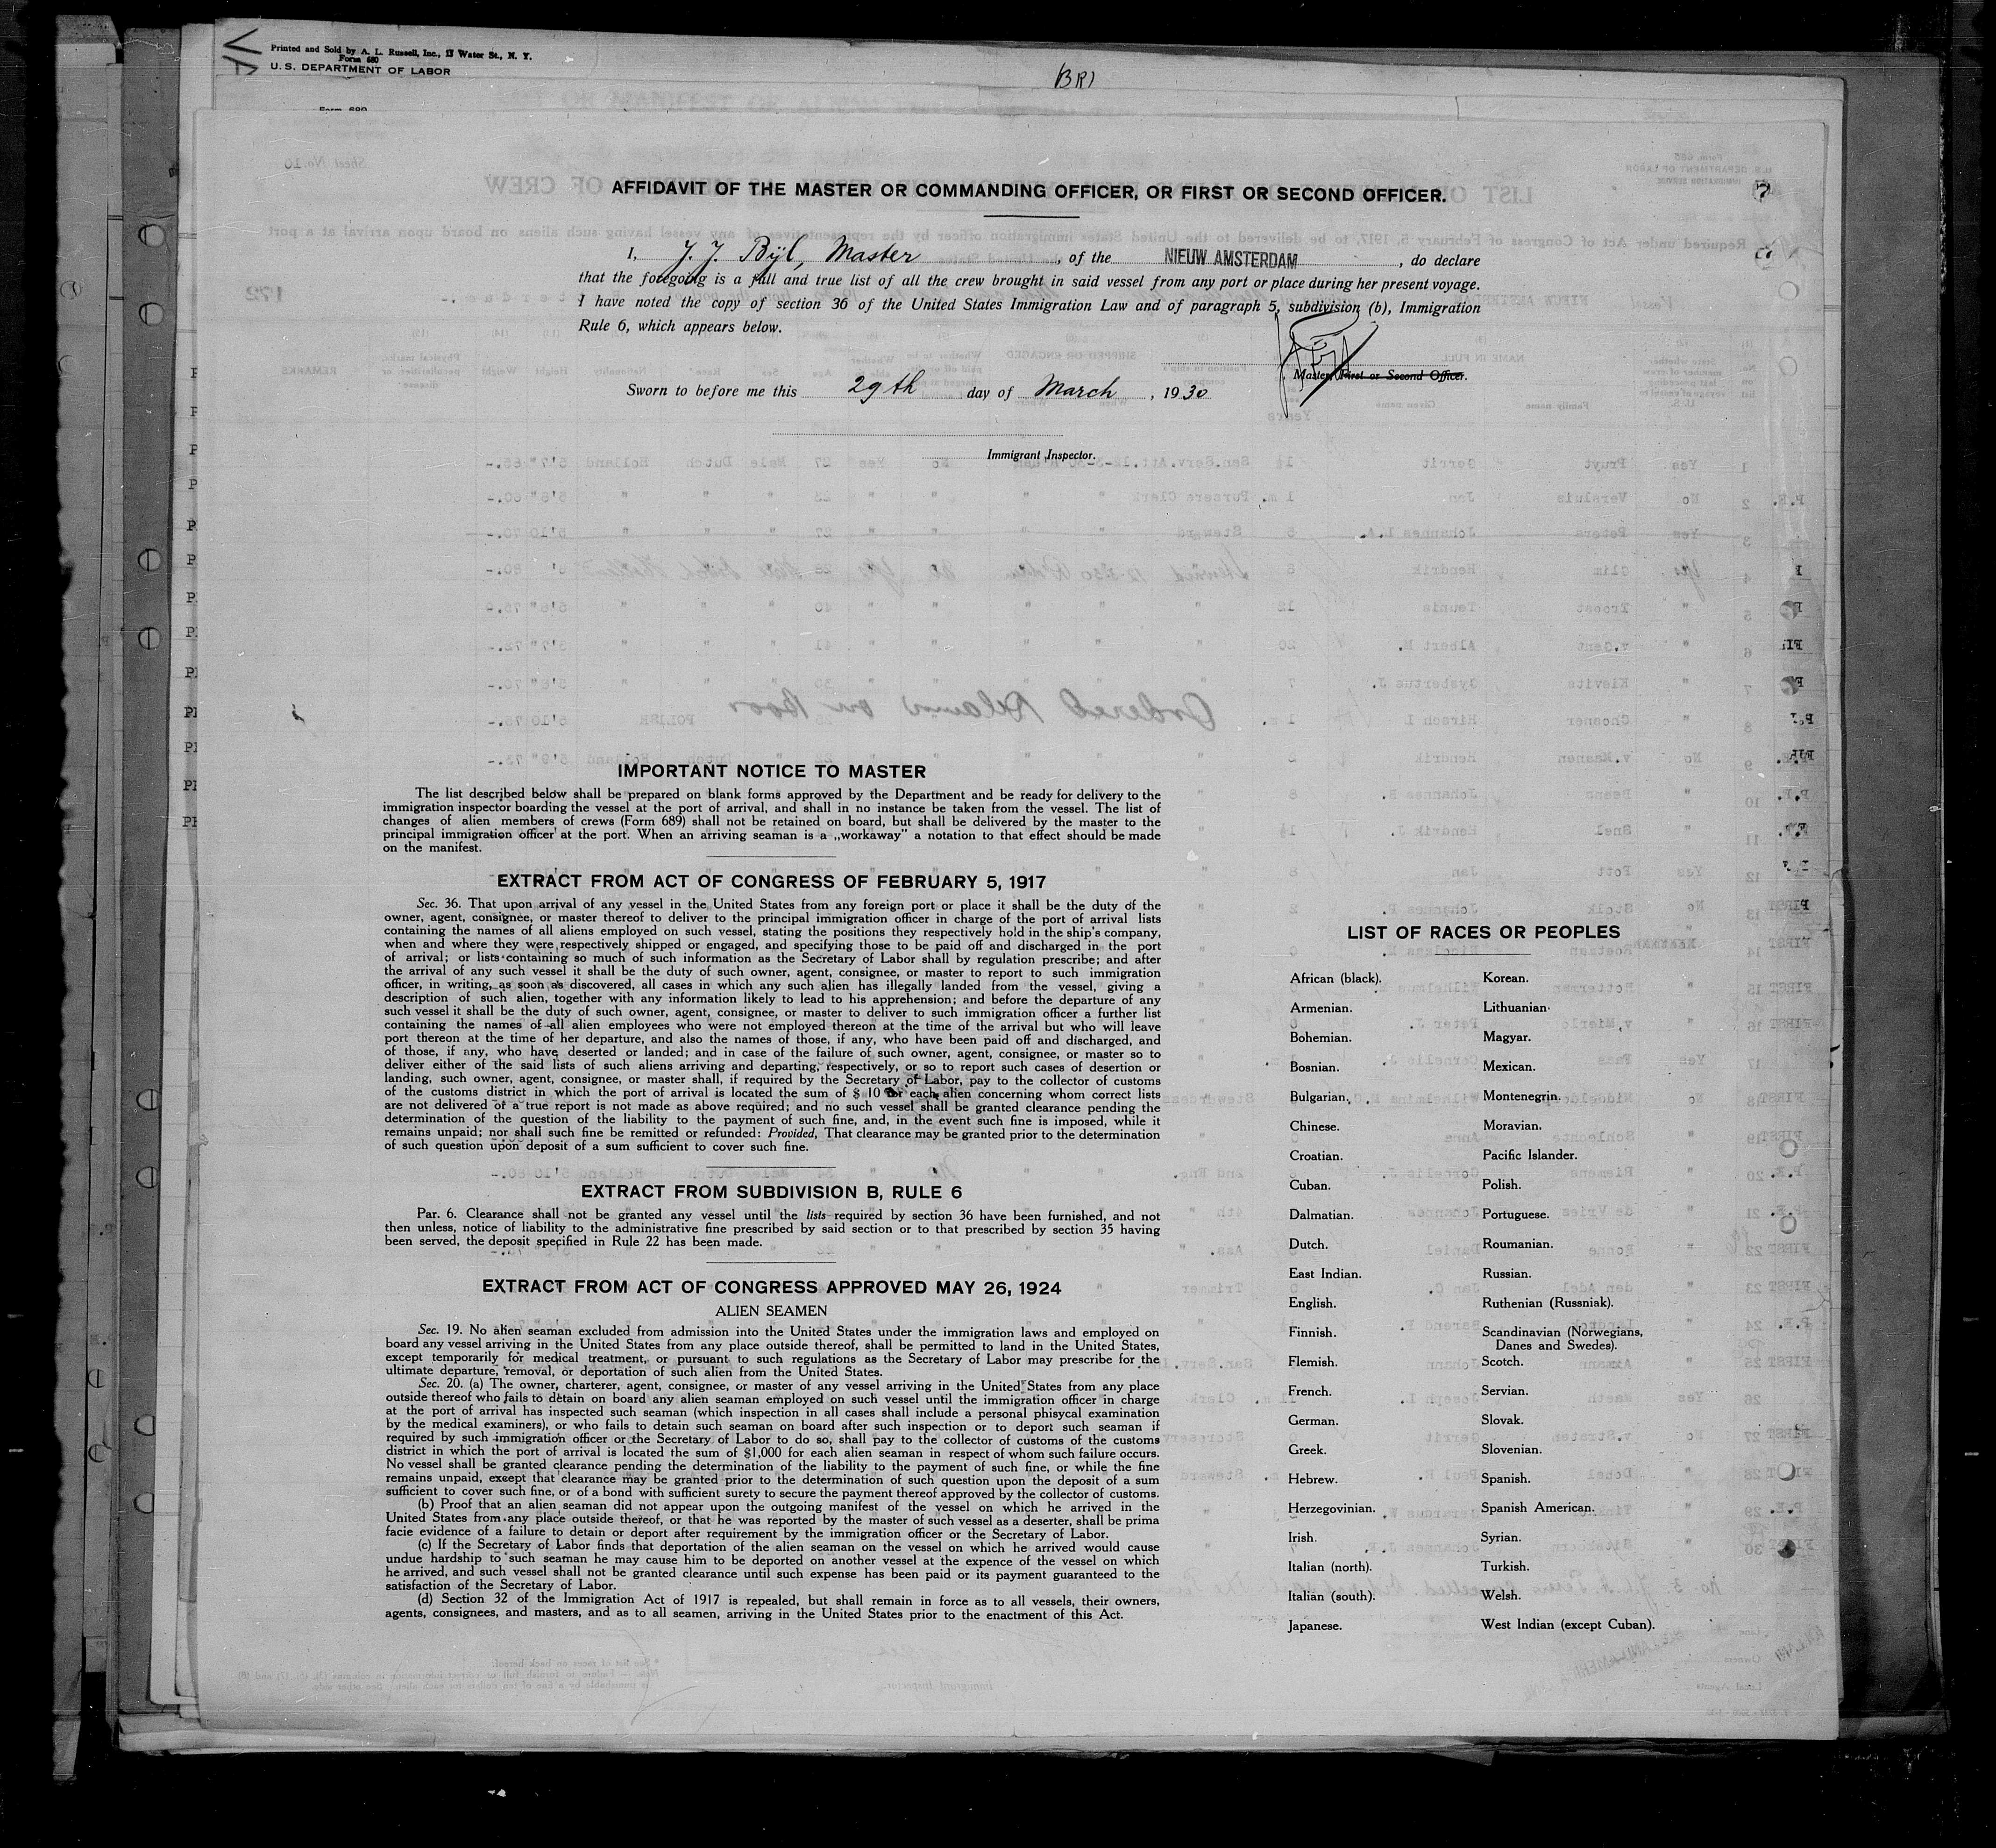 Printed and Sold by A. L. Russell, Inc., 17 Water St., N. Y.
Form 680
U. S. DEPARTMENT OF LABOR
BRI
AFFIDAVIT OF THE MASTER OR COMMANDING OFFICER, OR FIRST OR SECOND OFFICER.
I, J. J. Bÿl, Master, of the NIEUW AMSTERDAM, do declare
that the foregoing is a full and true list of all the crew brought in said vessel from any port or place during her present voyage.
I have noted the copy of section 36 of the United States Immigration Law and of paragraph 5, subdivision (b), Immigration
Rule 6, which appears below.
Master, First or Second Officer.
Sworn to before me this 29th day of March, 1930
Immigrant Inspector.
IMPORTANT NOTICE TO MASTER
The list described below shall be prepared on blank forms approved by the Department and be ready for delivery to the
immigration inspector boarding the vessel at the port of arrival, and shall in no instance be taken from the vessel. The list of
changes of alien members of crews (Form 689) shall not be retained on board, but shall be delivered by the master to the
principal immigration officer at the port. When an arriving seaman is a „workaway" a notation to that effect should be made
on the manifest.
EXTRACT FROM ACT OF CONGRESS OF FEBRUARY 5, 1917
Sec. 36. That upon arrival of any vessel in the United States from any foreign port or place it shall be the duty of the
owner, agent, consignee, or master thereof to deliver to the principal immigration officer in charge of the port of arrival lists
containing the names of all aliens employed on such vessel, stating the positions they respectively hold in the ship's company,
when and where they were respectively shipped or engaged, and specifying those to be paid off and discharged in the port
of arrival; or lists containing so much of such information as the Secretary of Labor shall by regulation prescribe; and after
the arrival of any such vessel it shall be the duty of such owner, agent, consignee, or master to report to such immigration
officer, in writing, as soon as discovered, all cases in which any such alien has illegally landed from the vessel, giving a
description of such alien, together with any information likely to lead to his apprehension; and before the departure of any
such vessel it shall be the duty of such owner, agent, consignee, or master to deliver to such immigration officer a further list
containing the names of all alien employees who were not employed thereon at the time of the arrival but who will leave
port thereon at the time of her departure, and also the names of those, if any, who have been paid off and discharged, and
of those, if any, who have deserted or landed; and in case of the failure of such owner, agent, consignee, or master so to
deliver either of the said lists of such aliens arriving and departing, respectively, or so to report such cases of desertion or
landing, such owner, agent, consignee, or master shall, if required by the Secretary of Labor, pay to the collector of customs
of the customs district in which the port of arrival is located the sum of $ 10 for each alien concerning whom correct lists
are not delivered or a true report is not made as above required; and no such vessel shall be granted clearance pending the
determination of the question of the liability to the payment of such fine, and, in the event such fine is imposed, while it
remains unpaid; nor shall such fine be remitted or refunded: Provided, That clearance may be granted prior to the determination
of such question upon deposit of a sum sufficient to cover such fine.
EXTRACT FROM SUBDIVISION B, RULE 6
Par. 6. Clearance shall not be granted any vessel until the lists required by section 36 have been furnished, and not
then unless, notice of liability to the administrative fine prescribed by said section or to that prescribed by section 35 having
been served, the deposit specified in Rule 22 has been made.
EXTRACT FROM ACT OF CONGRESS APPROVED MAY 26, 1924
ALIEN SEAMEN
Sec. 19. No alien seaman excluded from admission into the United States under the immigration laws and employed on
board any vessel arriving in the United States from any place outside thereof, shall be permitted to land in the United States,
except temporarily for medical treatment, or pursuant to such regulations as the Secretary of Labor may prescribe for the
ultimate departure, removal, or deportation of such alien from the United States.
Sec. 20. (a) The owner, charterer, agent, consignee, or master of any vessel arriving in the United States from any place
outside thereof who fails to detain on board any alien seaman employed on such vessel until the immigration officer in charge
at the port of arrival has inspected such seaman (which inspection in all cases shall include a personal phisycal examination
by the medical examiners), or who fails to detain such seaman on board after such inspection or to deport such seaman if
required by such immigration officer or the Secretary of Labor to do so, shall pay to the collector of customs of the customs
district in which the port of arrival is located the sum of $1,000 for each alien seaman in respect of whom such failure occurs.
No vessel shall be granted clearance pending the determination of the liability to the payment of such fine, or while the fine
remains unpaid, except that clearance may be granted prior to the determination of such question upon the deposit of a sum
sufficient to cover such fine, or of a bond with sufficient surety to secure the payment thereof approved by the collector of customs.
(b) Proof that an alien seaman did not appear upon the outgoing manifest of the vessel on which he arrived in the
United States from any place outside thereof, or that he was reported by the master of such vessel as a deserter, shall be prima
facie evidence of a failure to detain or deport after requirement by the immigration officer or the Secretary of Labor.
(c) If the Secretary of Labor finds that deportation of the alien seaman on the vessel on which he arrived would cause
undue hardship to such seaman he may cause him to be deported on another vessel at the expence of the vessel on which
he arrived, and such vessel shall not be granted clearance until such expense has been paid or its payment guaranteed to the
satisfaction of the Secretary of Labor.
(d) Section 32 of the Immigration Act of 1917 is repealed, but shall remain in force as to all vessels, their owners,
agents, consignees, and masters, and as to all seamen, arriving in the United States prior to the enactment of this Act.
LIST OF RACES OR PEOPLES
African (black).
Armenian.
Bohemian.
Bosnian.
Bulgarian.
Chinese.
Croatian.
Cuban.
Dalmatian.
Dutch.
East Indian.
English.
Finnish.
Flemish.
French.
German.
Greek.
Hebrew.
Herzegovinian.
Irish.
Italian (north).
Italian (south).
Japanese.
Korean.
Lithuanian.
Magyar.
Mexican.
Montenegrin.
Moravian.
Pacific Islander.
Polish.
Portuguese.
Roumanian.
Russian.
Ruthenian (Russniak).
Scandinavian (Norwegians,
Danes and Swedes).
Scotch.
Servian.
Slovak.
Slovenian.
Spanish.
Spanish American.
Syrian.
Turkish.
Welsh.
West Indian (except Cuban).